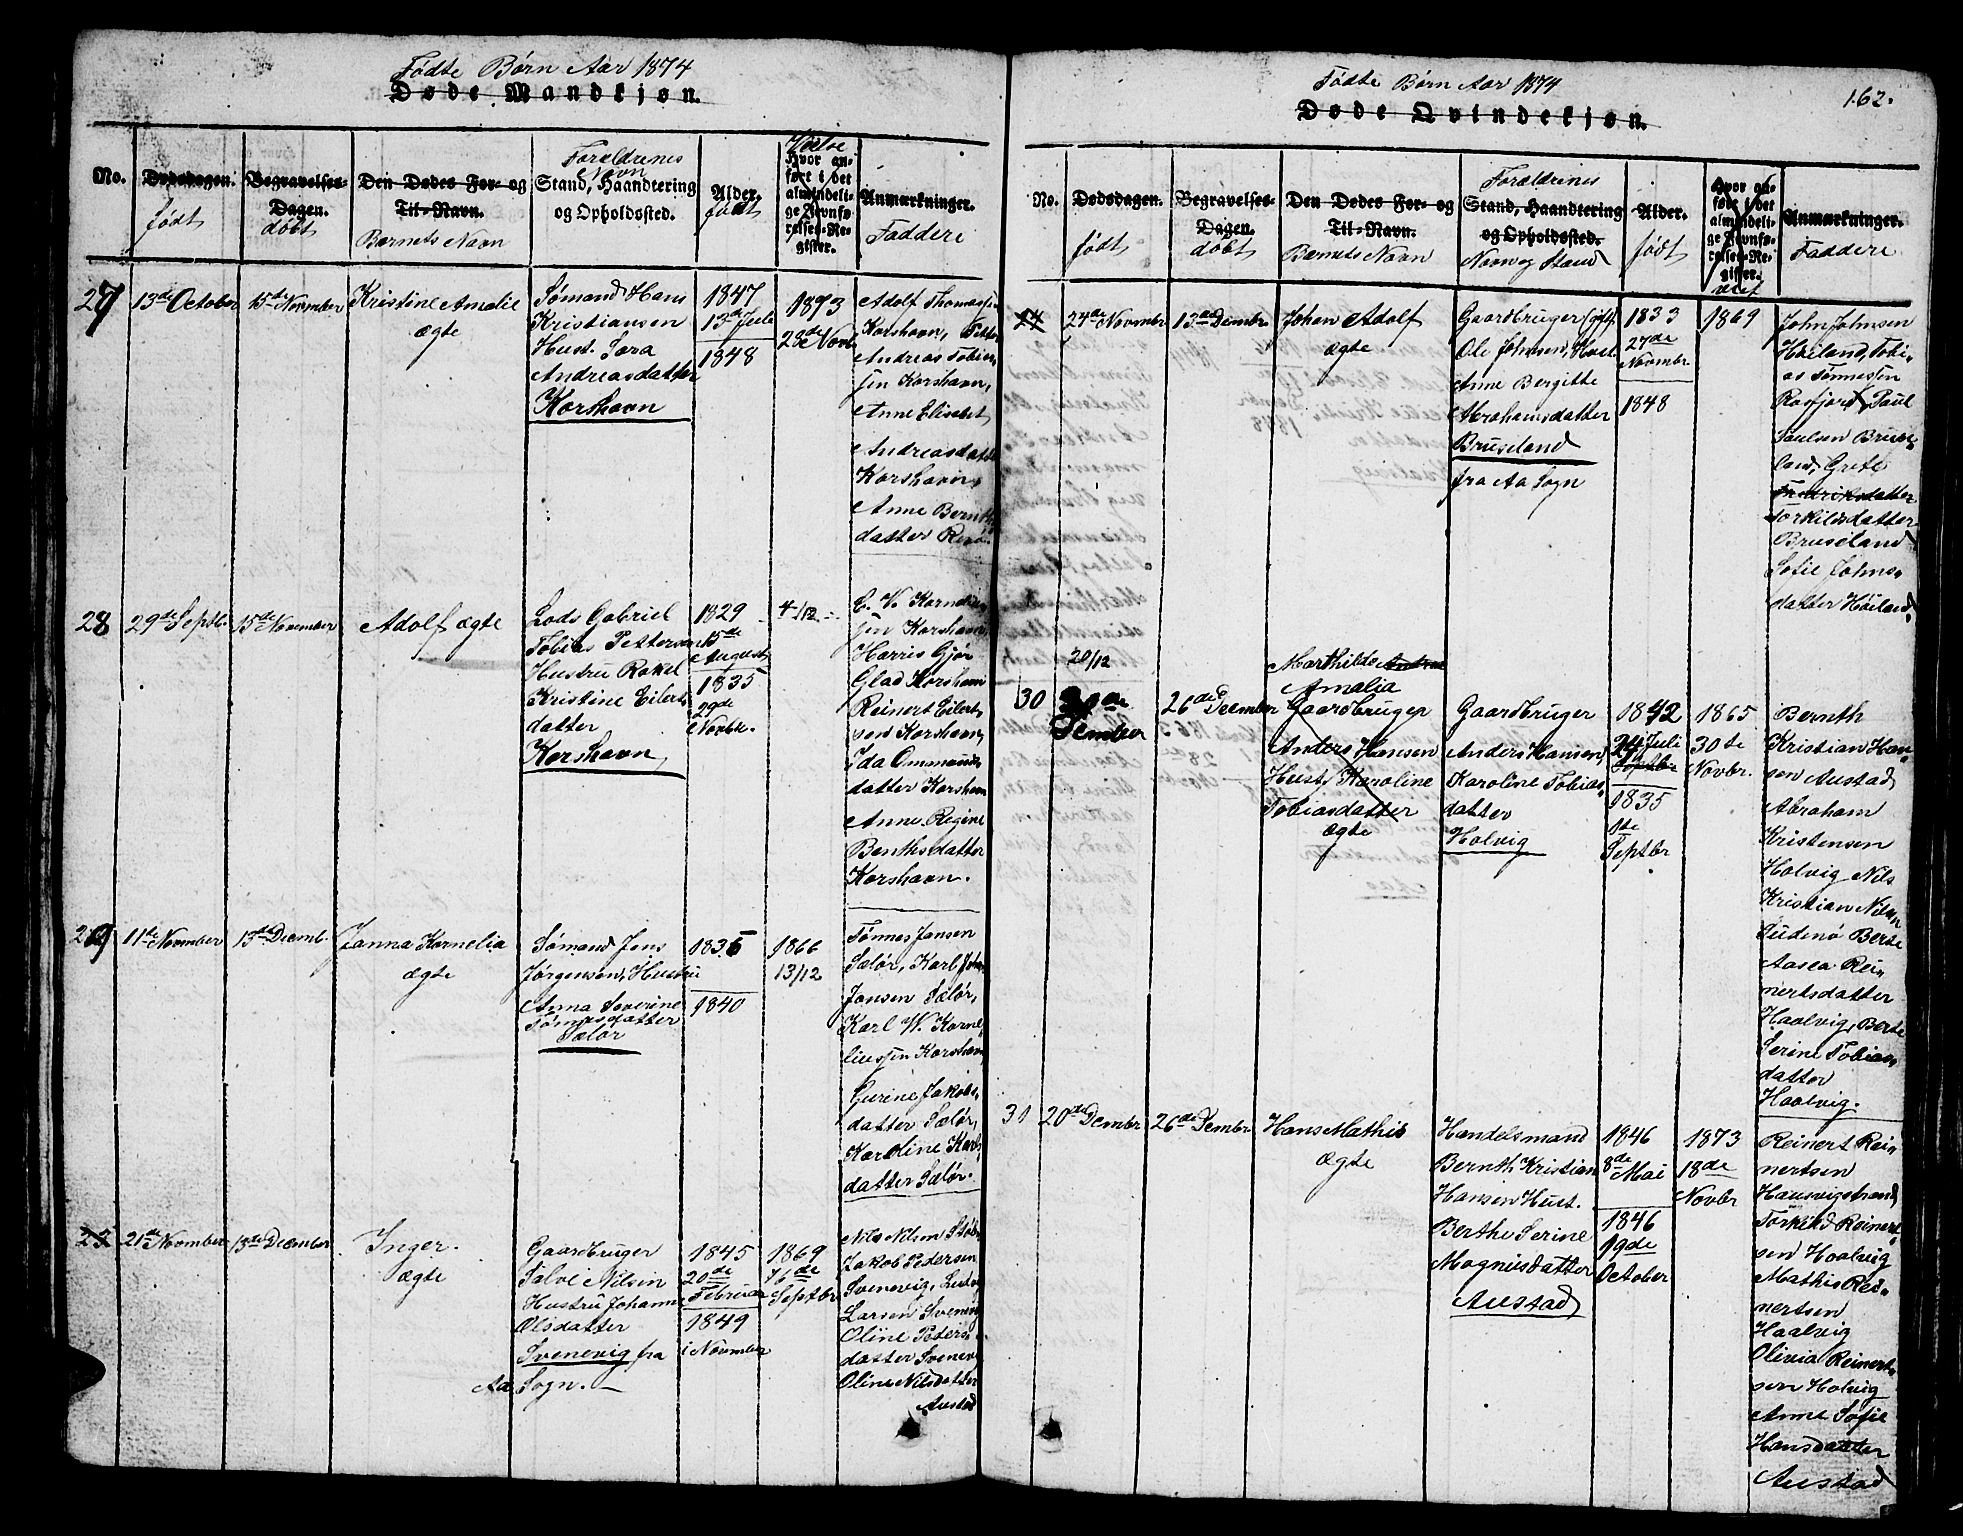 Fødte Børn Aar 1874
Døde Mandkjøn.
No.
Dødsdagen.
født
Begravelses-
Dagen.
døbt
Den Dødes For- og
Til-Navn.
Barnets Navn
Forældrenes
Navn
Stand, Haandtering
og Opholdssted.
Alder.
født
Hvor an-
ført i det
almindeli-
ge Jevnfø-
relses-Re-
gister.
Anmærkninger.
Faddere
27
13de October
15de November
Kristine Amalie
ægte
Sømand Hans
Kristiansen
Hust. Sara
Andreasdatter
Korshavn
1847
13de Juli
1848
1873
28de Novbr
Adolf Thomassen
Korshavn, Peter
Andreas Tobias-
sen Korshavn,
Anne Elisabet
Andreasdatter
Korshavn,
Anne Bernth
datter
28
29de Septb.
15de November
Adolf ægte
Lods Gabriel
Tobias Pettersen
Hustru Rakel
Kristine Eilerts
datter
Korshavn
1829
15de
August
1835
29de
Novbr.
4/12
C. V. Korneliu-
sen Korshavn,
Harris Gjør
Glad Korshavn
Reinert Eilert-
sen Korshavn,
Ida Ommunds
datter Korshavn
Anne Regine
Benthsdatter
Korshavn.
29
11te November
13de Decemb.
Janna Kornelia
ægte
Sømand Jens
Jørgensen, Hustru
Anna Severine
Tønnesdatter
Sælør
1835
1840
1866
13/12
Tønnes Jansen
Sælør, Karl Johan
Jansen Sælør,
Karl W. Korne-
liussen Korshavn
Gurine Jakobs-
datter Sælør,
Karoline Karls
datter Sælør.
21de November
13de December
Inger.
ægte
Gaardbruger
Salve Nilsen
Hustru Johanne
Olsdatter
Svenevig fra
Aa Sogn.
1845
20de
Februar
1849
i November
1869
16de
Septbr
Nils Nilsen
Jakob Pedersen
Svenevig,
Larsen Svenevig
Oline Peders-
datter Svenevig
Oline Nilsdatter
Austad
Fødte Børn Aar 1874
162.
Døde Qvindekjøn.
No.
Dødsdagen.
født
Begravelses-
Dagen.
døbt
Den Dødes For- og
Til-Navn.
Barnets Navn
Forældrenes
Stand, Haandtering
og Opholdssted.
Navn og Stand
Alder.
født
Hvor an-
ført i det
almindeli-
ge Jevnfø-
relses-Re-
gister.
viet
Anmærkninger.
Faddere
24
24de Novembr
13de Decmbr.
Johan Adolf
ægte
Gaardbruger
Ole Johnsen, Hust.
Anne Bergitte
Abrahamsdatter
Bruseland
fra Aa Sogn
1833
27de
Novembr
1848
1869
John Johnsen
Høiland, Tobi-
as Tønnesen
Rosfjord, Paul
Paulsen Bruse-
land, Grete
Fredriksdatter
Torkildsdatter
Bruseland
Sofie Johns-
datter Høiland
30
20/12
26de December
Marthilde Andrea
Amalia
Gaardbruger
Anders Hansen
Hust. Karoline
Tobiasdatter
ægte
Gaardbruger
Anders Hansen,
Karoline Tobias-
datter
Holvig
1842
24 Juli
Septbr
1835
1te
Septbr
1865
30te
Novbr.
Bernth
Kristian Han-
sen Austad,
Abraham
Kristensen
Holvig Nils
Kristian Nilsen
Berte
Aasea Rei-
nertsdatter
Haalvig, Berte
Serine Tobias-
datter
Haalvig.
31
20de Decembr.
26de Decembr.
Hans Mathis
Ægte
Handelsmand
Bernth Kristian
Hansen Hust.
Berthe Serine
Magnusdatter
Austad
1846
8de Mai
1846
19de
October
1873
18de
Novbr
Reinert Rei-
nertsen
Hausvigstrand,
Torkild Reinert-
sen Haalvig
Mathis Rei-
nertsen
Haalvig
Olivia Reinert-
sen Holvig
Anne Sofie
Hansdatter
Austad